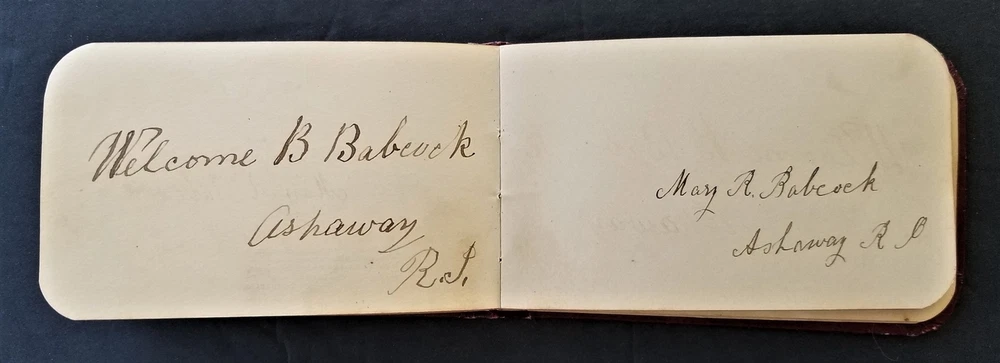 Welcome B Babcock
Ashaway
R.I.
Mary R. Babcock
Ashaway R I